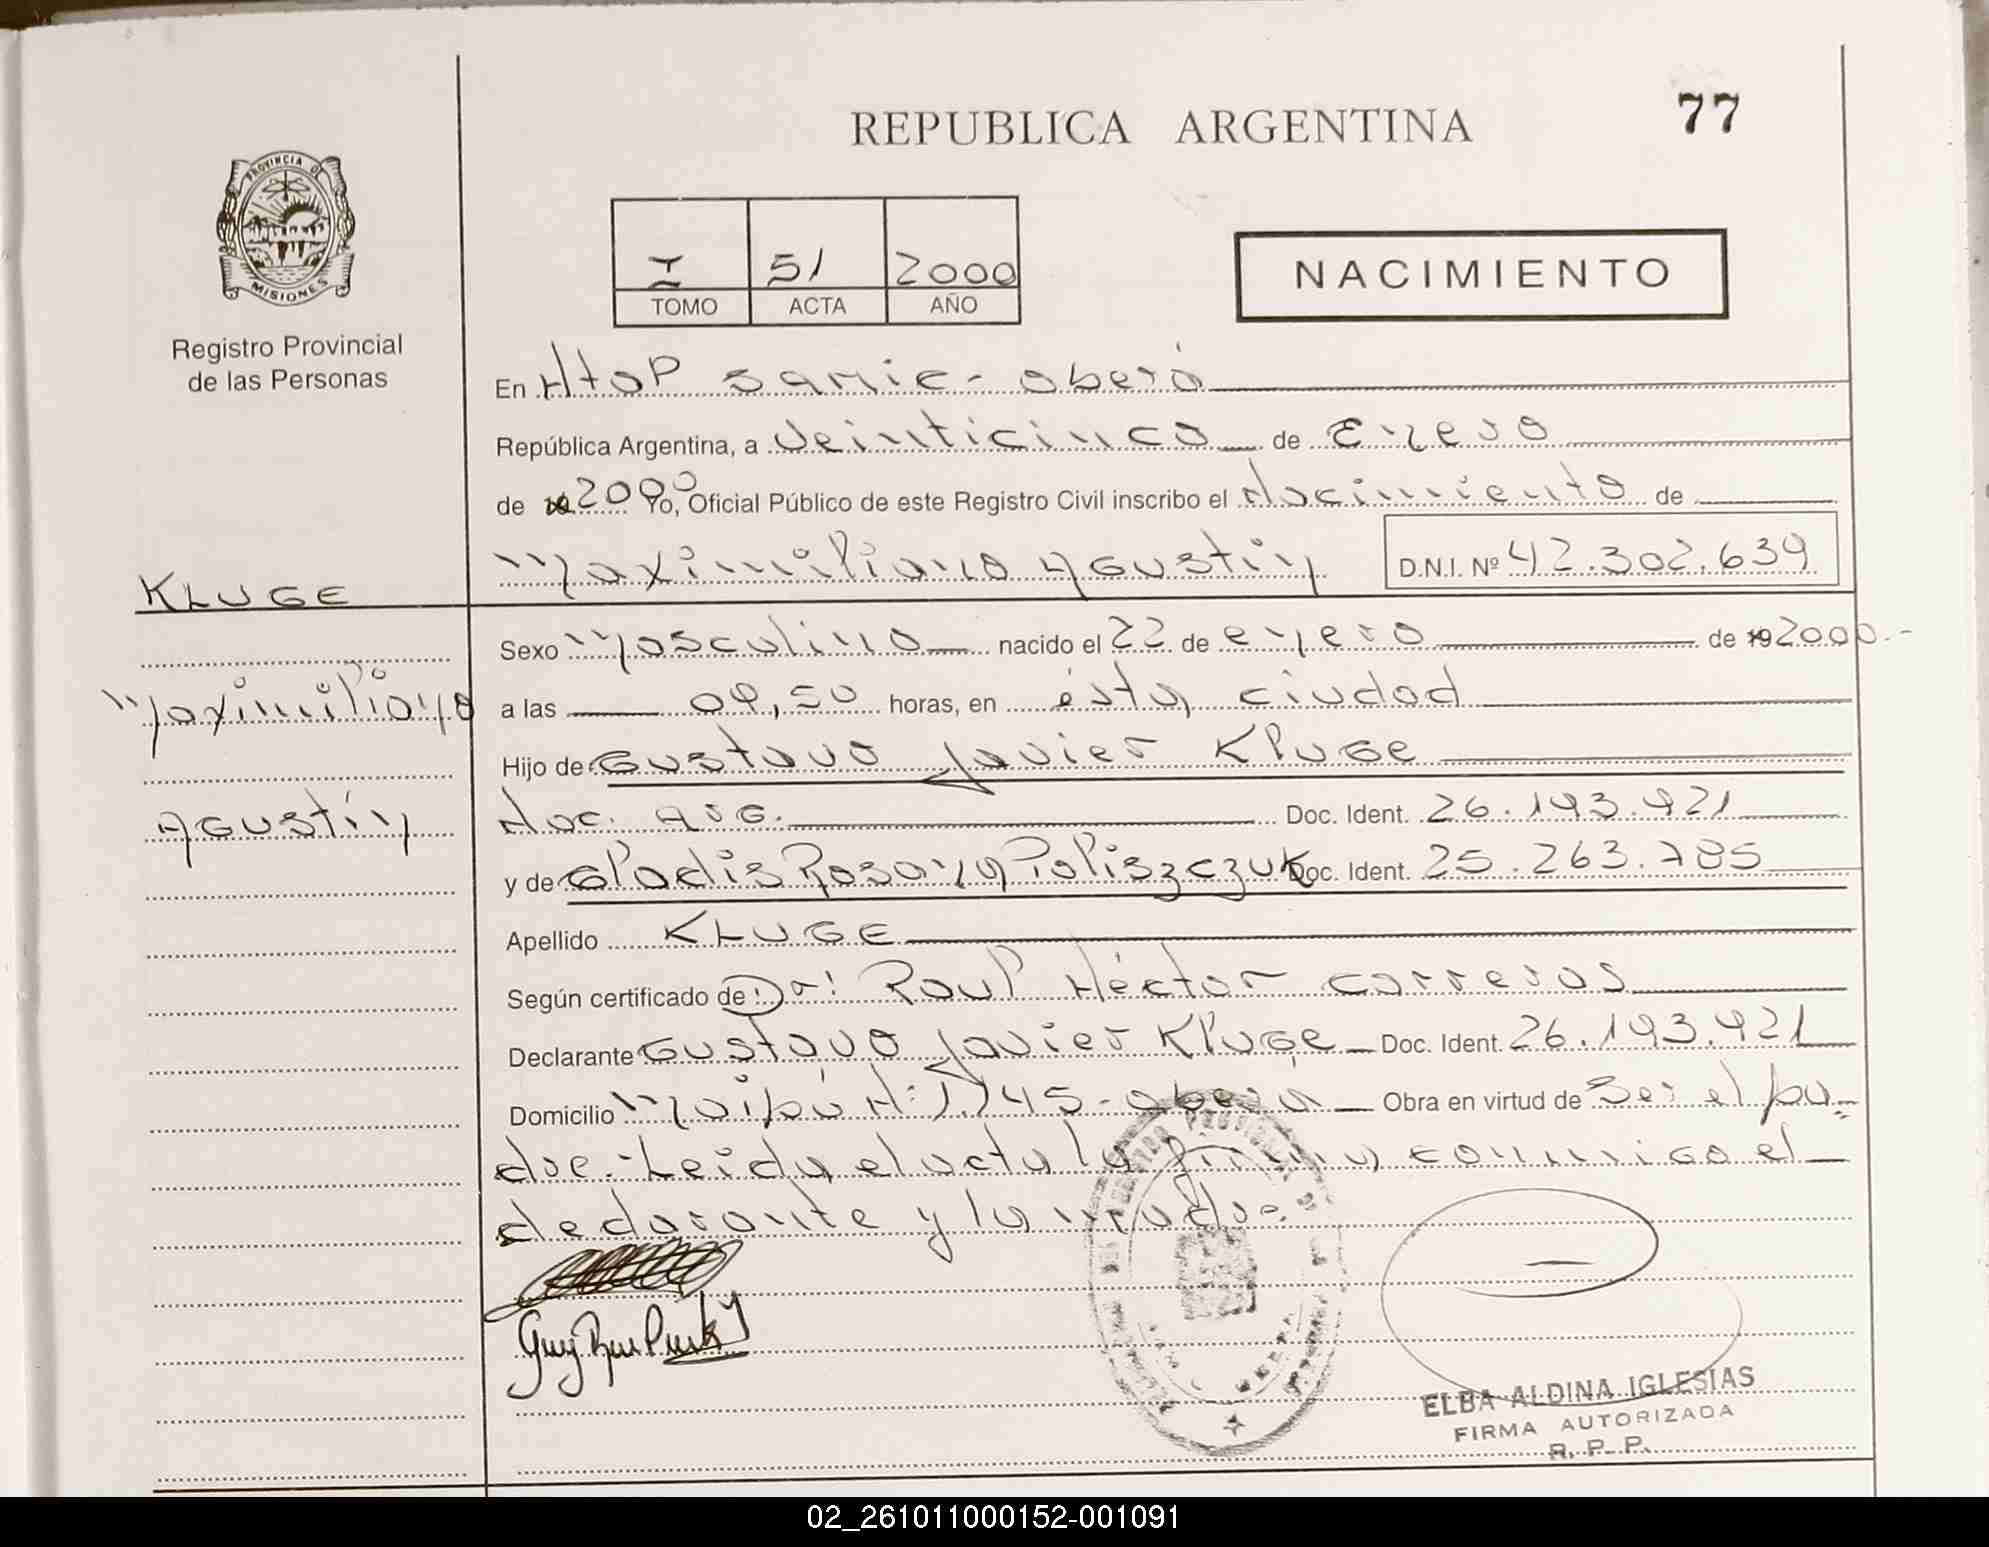 REPUBLICA ARGENTINA
77
PROVINCIA DE
MISIONES
Registro Provincial
de las Personas
I 51 2000
TOMO ACTA AÑO
NACIMIENTO
En Htop samic - oberá
República Argentina, a veinticinco de Enero
de 2000 Yo, Oficial Público de este Registro Civil inscribo el Nacimiento de
Maximiliano Agustin D.N.I. Nº 42.302.639
KLUGE
Maximiliano
Agustin
Sexo Masculino nacido el 22 de enero de 192000.-
a las 09,50 horas, en ésta ciudad
Hijo de Gustavo Javier Kluge
Nac. Arg. Doc. Ident. 26.193.921
y de Gladis Rosana Poliszczuk Doc. Ident. 25.263.785
Apellido KLUGE
Según certificado de Dr: Raul Héctor Carreras
Declarante Gustavo Javier Kluge Doc. Ident. 26.193.921
Domicilio Maipú N: 1.745 - oberá Obra en virtud de Ser el pa-
dre.- Leida el acta la firman conmigo el
declarante y la madre.
ELBA ALDINA IGLESIAS
FIRMA AUTORIZADA
R. P. P.
02_261011000152-001091